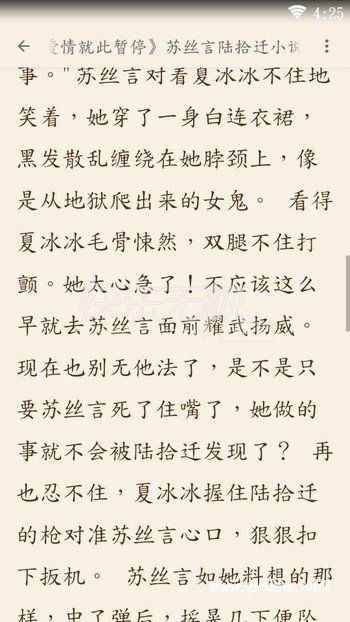 4:25
爱情就此暂停》苏丝言陆拾迁小说
事。"苏丝言对看夏冰冰不住地
笑着，她穿了一身白连衣裙，
黑发散乱缠绕在她脖颈上，像
是从地狱爬出来的女鬼。 看得
夏冰冰毛骨悚然，双腿不住打
颤。她太心急了！不应该这么
早就去苏丝言面前耀武扬威。
现在也别无他法了，是不是只
要苏丝言死了住嘴了，她做的
事就不会被陆拾迁发现了？ 再
也忍不住，夏冰冰握住陆拾迁
的枪对准苏丝言心口，狠狠扣
下扳机。 苏丝言如她料想的那
样，中了弹后，摇晃几下便坠